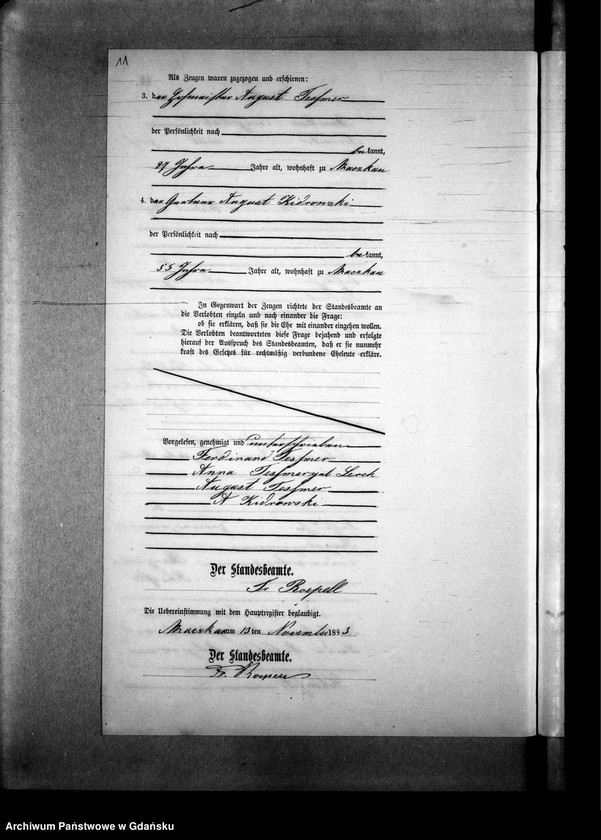 11
Als Zeugen waren zugezogen und erschienen:
3. der Hofmeister August Tessmer
der Persönlichkeit nach
be kannt,
27 Jahre Jahre alt, wohnhaft zu Maczkau
4. der August Kidrowski
der Persönlichkeit nach
be kannt,
55 Jahre Jahre alt, wohnhaft zu Maczkau
In Gegenwart der Zeugen richtete der Standesbeamte an
die Verlobten einzeln und nach einander die Frage:
ob sie erklären, daß sie die Ehe mit einander eingehen wollen.
Die Verlobten beantworteten diese Frage bejahend und erfolgte
hierauf der Ausspruch des Standesbeamten, daß er sie nunmehr
kraft des Gesetzes für rechtmäßig verbundene Eheleute erkläre.
Vorgelesen, genehmigt und unterschrieben
Ferdinand Tessmer
Anna Tessmer geb. Lerch
August Tessmer
A Kidrowski
Der Standesbeamte.
Fr. Roepell
Die Uebereinstimmung mit dem Hauptregister beglaubigt.
Maczkau am 13 ten November 1883
Der Standesbeamte.
Fr.
Archiwum Państwowe w Gdańsku